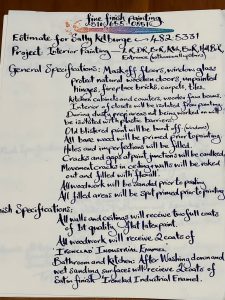 fine finish painting
Estimate for Sally Kilbunge 482 5331
Project: Interior Painting
General Specifications: Mask off floors, window glass
protect natural wooden doors, unpainted
hinges, fireplace bricks, carpets, tiles
kitchen cabinets and counters, wooden fan boxes.
Interior of closets will be isolated from painting.
During dusty prep areas not being worked on will
be isolated with plastic barriers
Old blistered paint will be burnt off. (windows)
All bare wood will be primed prior to painting
Holes and imperfections will be filled.
Cracks and gaps at paint junctions will be caulked
Movement cracks in ceilings + walls will be raked
out and filled with
All woodwork will be sanded prior to painting
All filled areas will be spot primed prior to painting
ish Specifications:
All walls and ceilings will receive two full coats
of 1st quality flat latex paint.
All woodwork will receive 2 coats of
Ironclad Industrial Enamel.
Bathroom and Kitchen: After Washing down and
wet sanding surfaces will receive 2 coats of
Satin finish Ironclad Industrial Enamel.